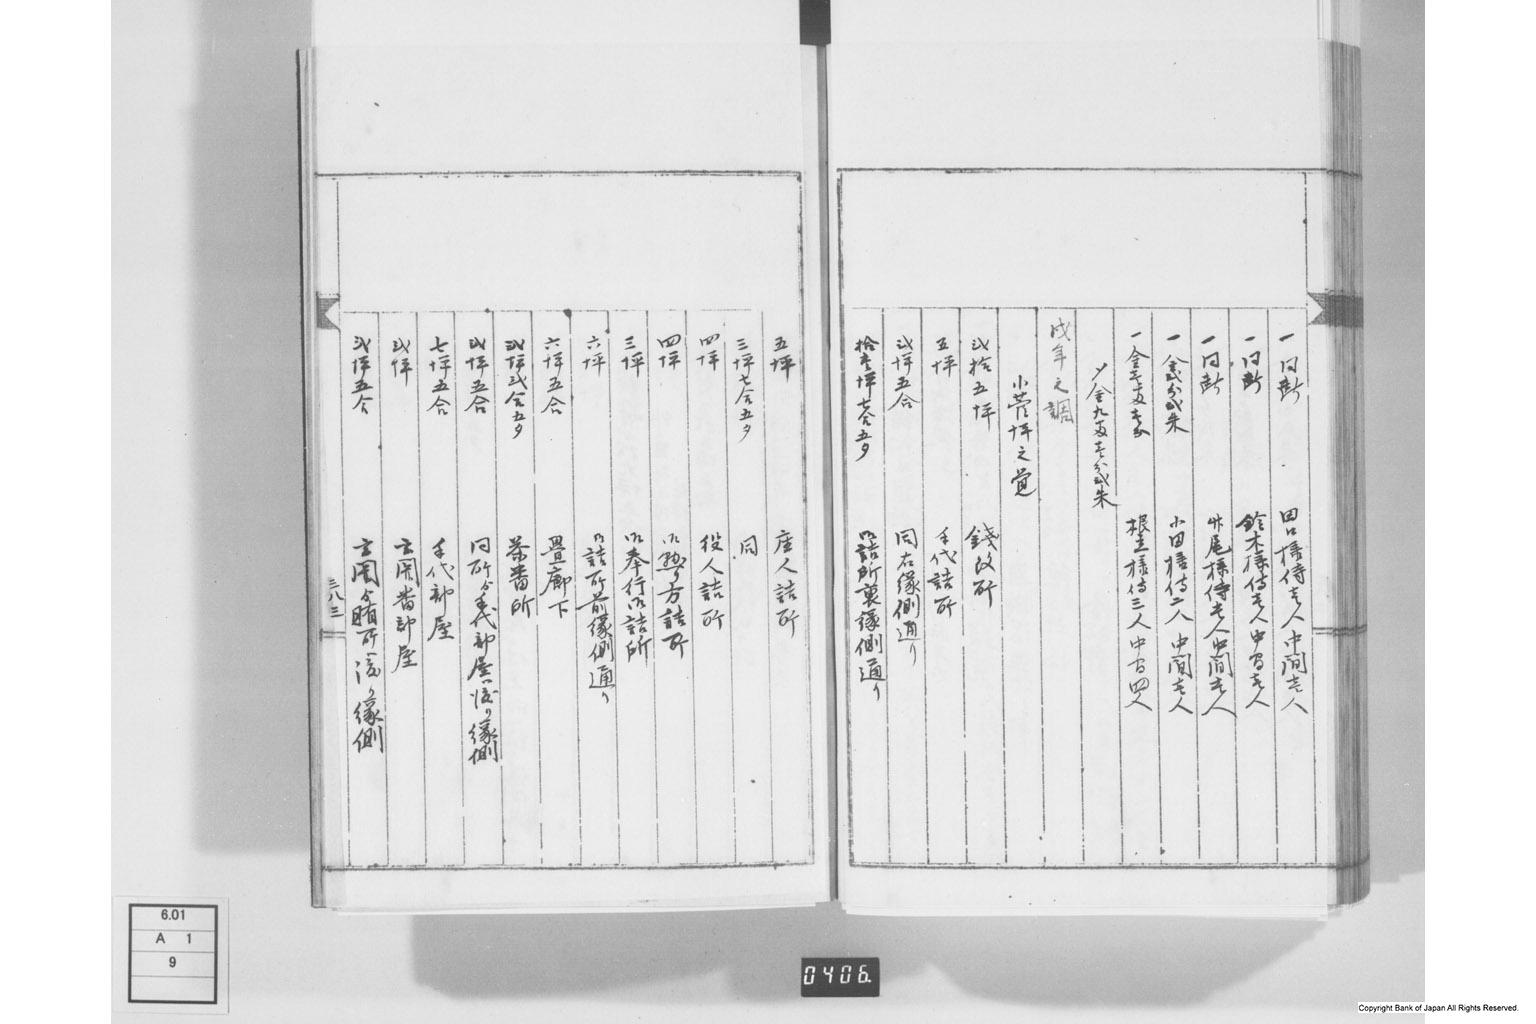 一 同断 田口様侍壱人中間壱人
一 同断 鈴木様侍壱人中間壱人
一 同断 様侍壱人中間壱人
一 金弐分弐朱 小田様侍二人中間壱人
一 金壱両壱分 様侍三人中間四人
〆金九両壱分弐朱
戌年之調
小菅坪之覚
弐拾五坪 錢改所
五坪 手代詰所
弐坪五合 同右縁側通り
拾壱坪七合五夕 御詰所裏縁側通り
五坪 座人詰所
三坪七合五夕 同
四坪 役人詰所
四坪 御掛り方詰所
三坪 御奉行御詰所
六坪 御詰所前縁側通り
六坪五合 畳廊下
弐坪弐合五夕 茶番所
弐坪五合 同所ゟ手代部屋渡り縁側
七坪五合 手代部屋
弐坪 玄関番部屋
弐坪五合 玄関ゟ賄所渡り縁側
三八三
6.01
A 1
9
0406
Copyright Bank of Japan All Rights Reserved.